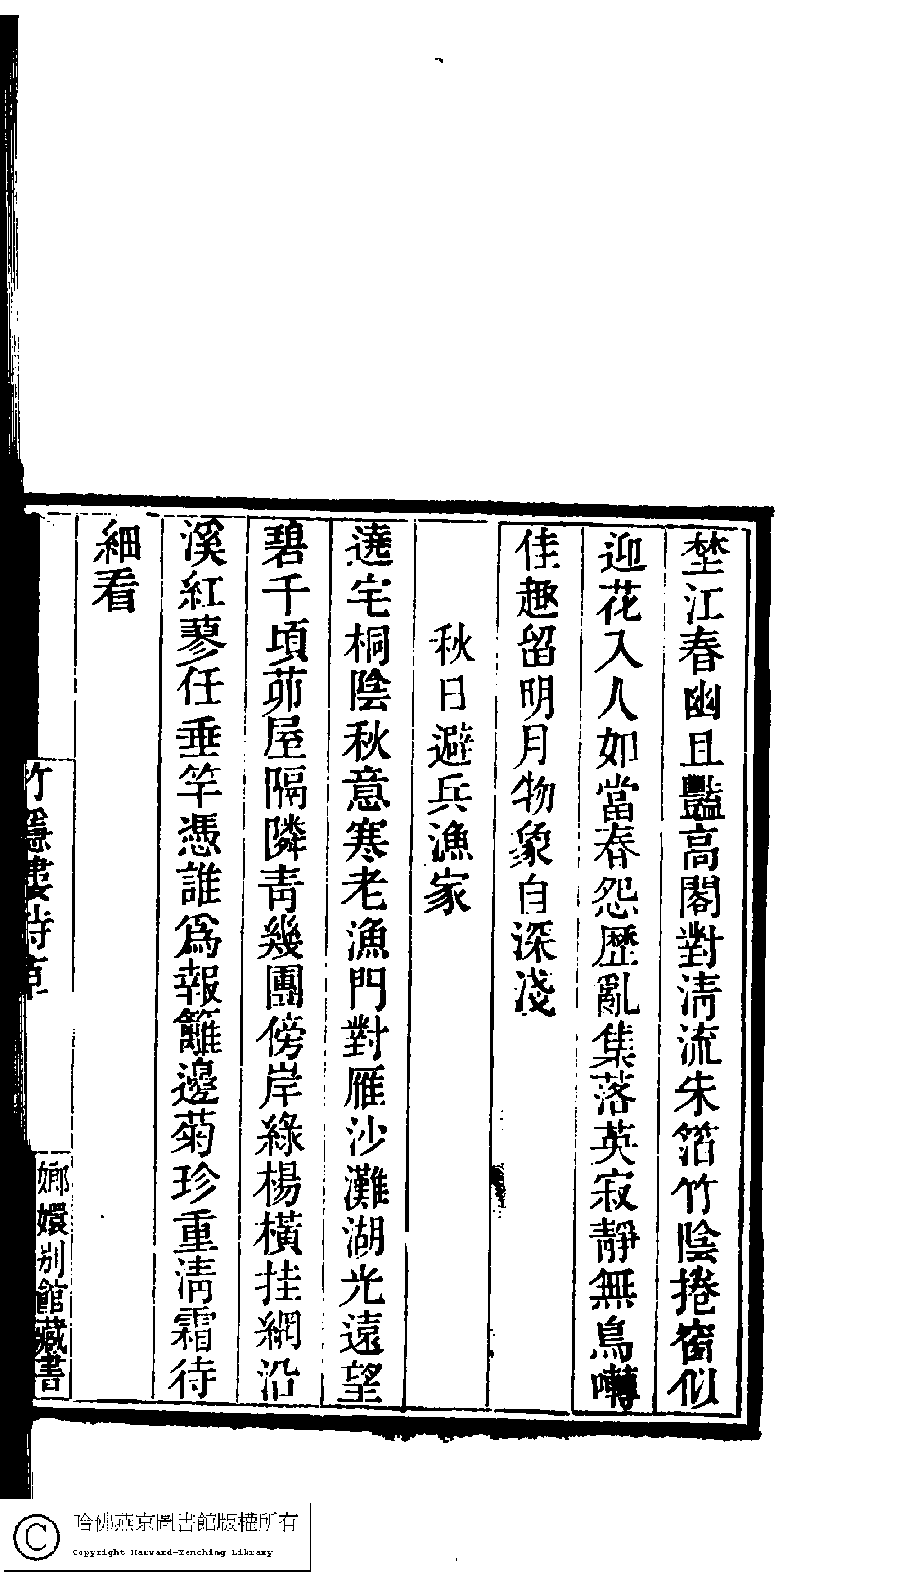 埜江春幽且豔高閣對清流朱箔竹陰捲窗似
迎花入人如當春怨歷亂集落英寂靜無鳥囀
佳趣留明月物象自深淺
秋日避兵漁家
遶宅桐陰秋意寒老漁門對雁沙灘湖光遠望
碧千頃茆屋隔隣青幾團傍岸綠楊橫挂網沿
溪紅蓼任垂竿憑誰爲報籬邊菊珍重清霜待
細看
竹隱樓詩草
嫏嬛别館藏書
哈佛燕京圖書館版權所有
Copyright Harvard-Yenching Library